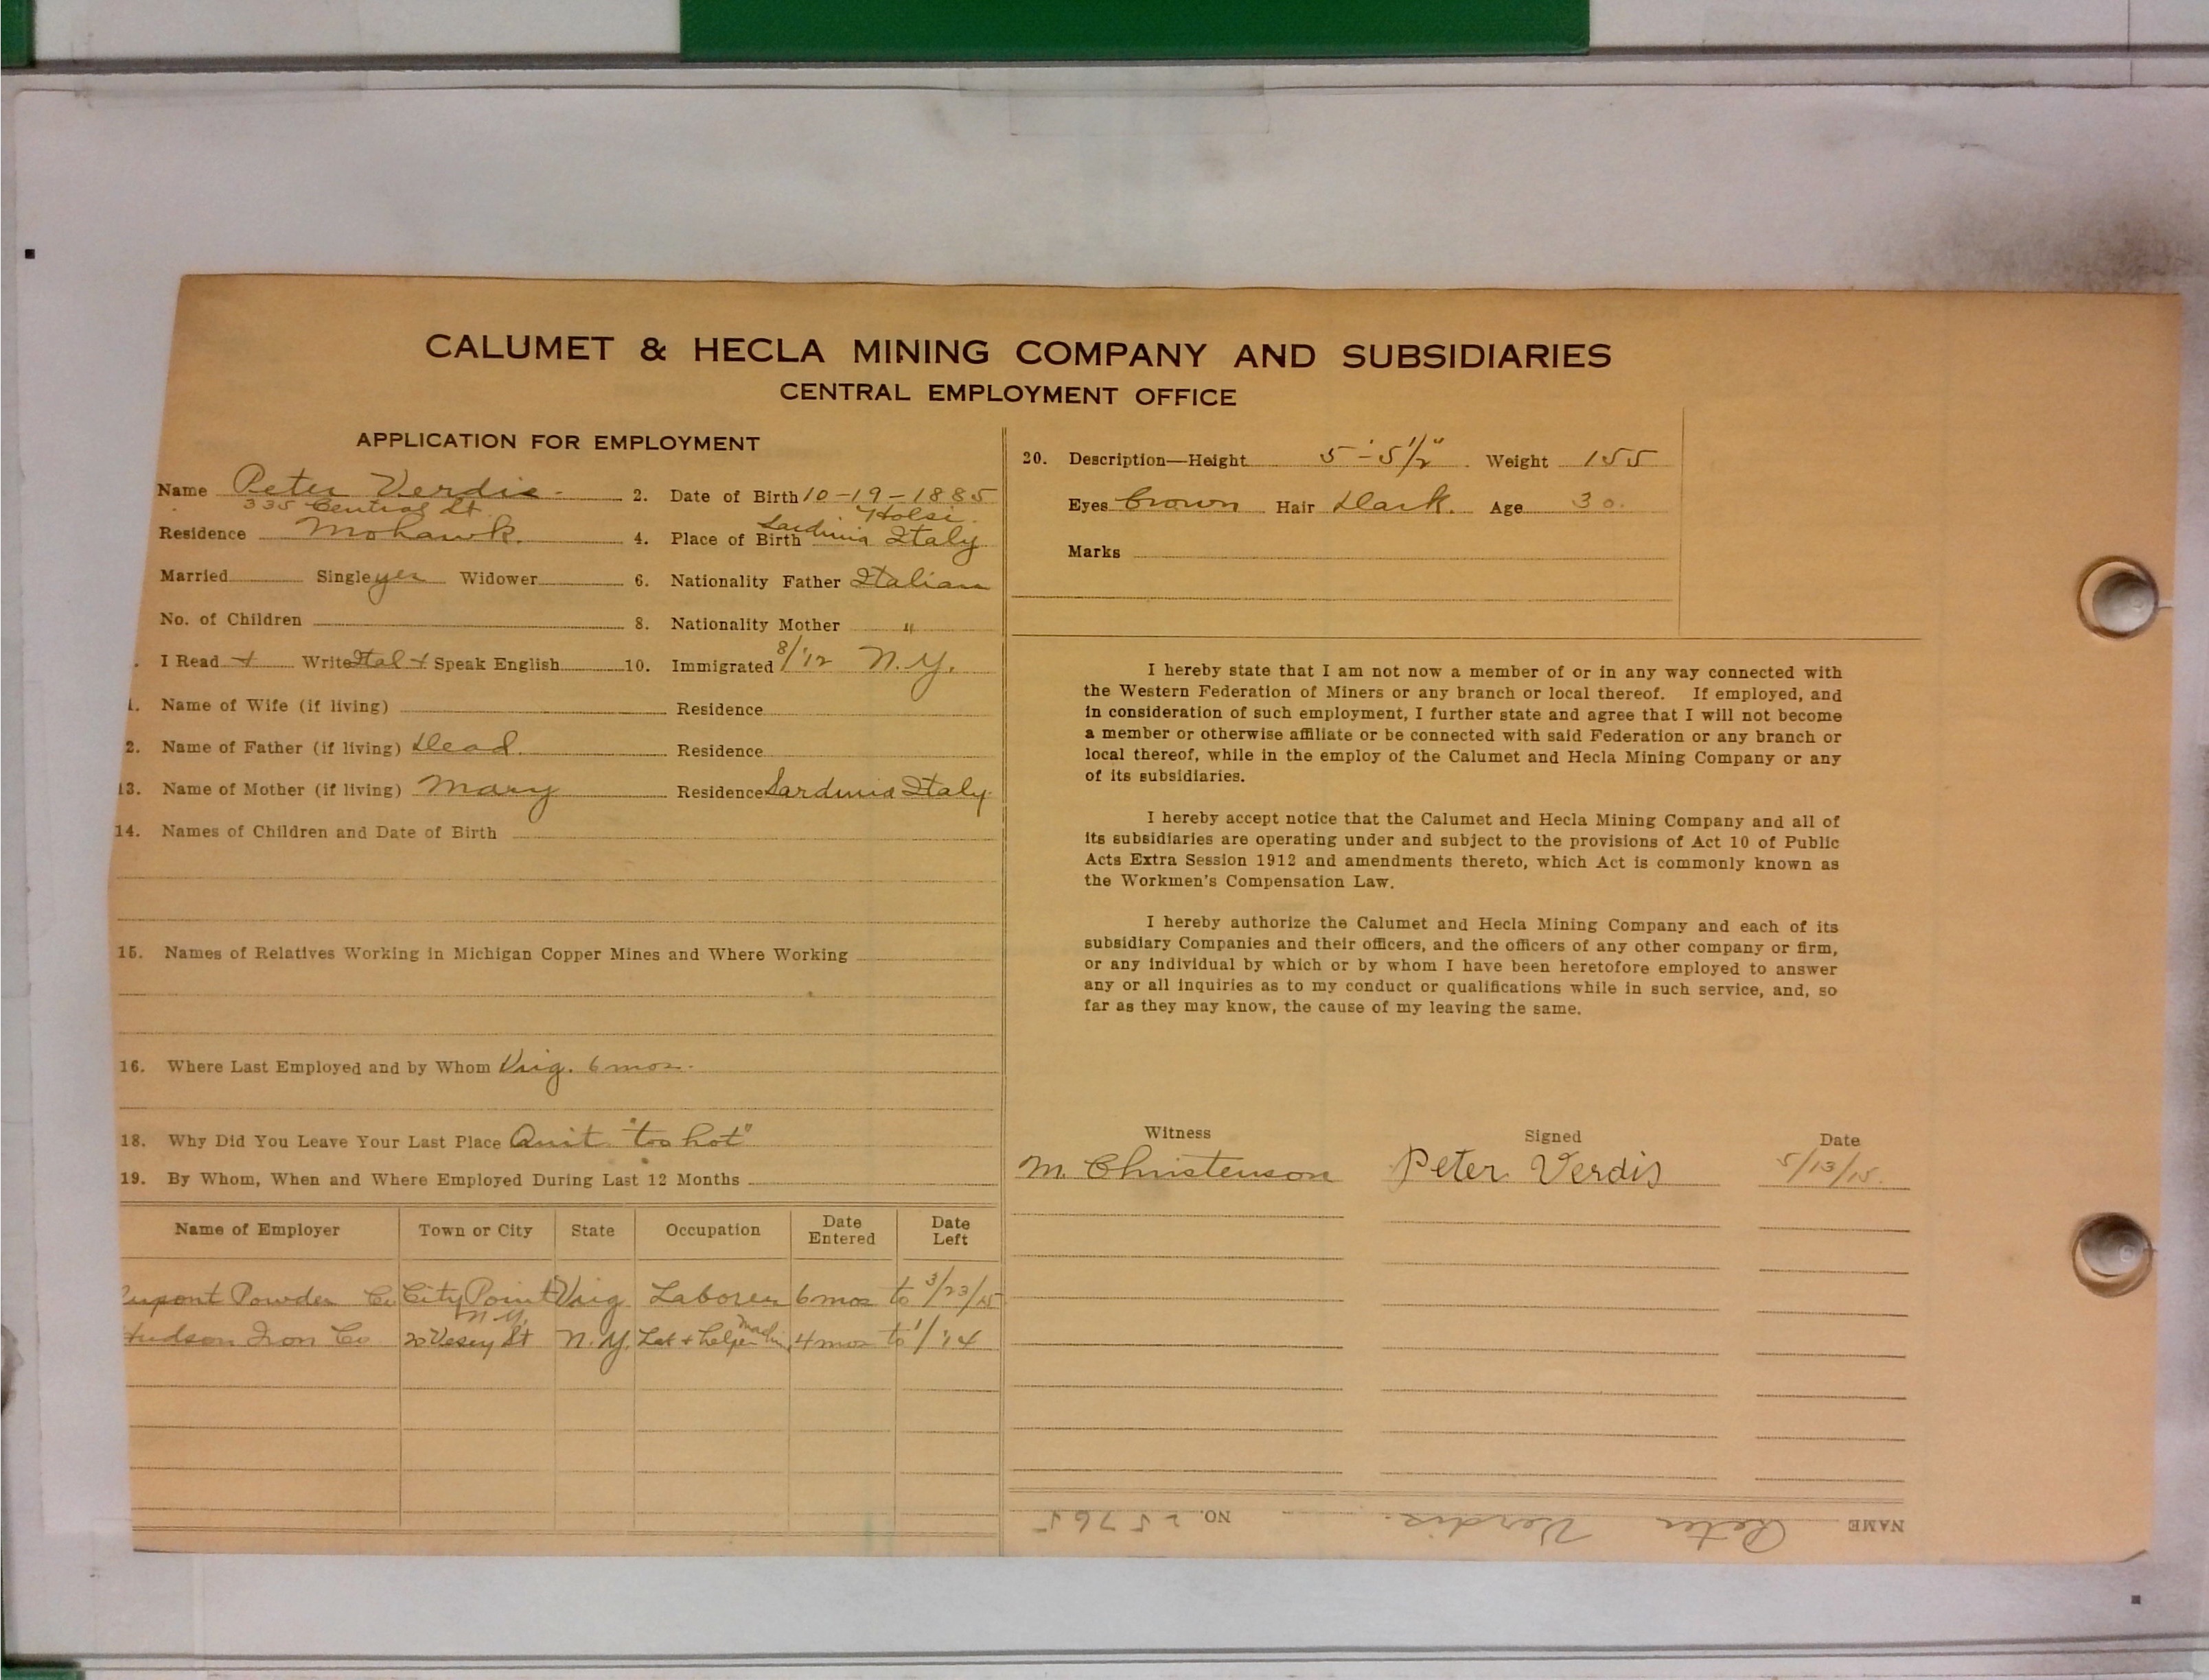 CALUMET & HECLA MINING COMPANY AND SUBSIDIARIES
CENTRAL EMPLOYMENT OFFICE
APPLICATION FOR EMPLOYMENT
Name Peter Verdis 2. Date of Birth 10-19-1885
335 Central St.
Residence Mohawk. 4. Place of Birth Sardinia Italy
Married Single yes Widower 6. Nationality Father Italian
No. of Children 8. Nationality Mother "
I Read + Write Ital + Speak English 10. Immigrated 8/'12 N.Y.
1. Name of Wife (if living) Residence
2. Name of Father (if living) Dead. Residence
13. Name of Mother (if living) Mary Residence Sardinia Italy.
14. Names of Children and Date of Birth
15. Names of Relatives Working in Michigan Copper Mines and Where Working
16. Where Last Employed and by Whom Virg. 6 mos.
18. Why Did You Leave Your Last Place Quit "too hot"
19. By Whom, When and Where Employed During Last 12 Months
Name of Employer Town or City State Occupation Date Entered Date Left
Dupont Powder Co City Point Virg Laborer 6 mos to 3/23/15
N.Y.
Hudson Iron Co 20 Vesey St N.Y. Lab + helper 4 mos to 1/'14
20. Description—Height 5'-5 1/2" Weight 155
Eyes brown Hair Dark. Age 30.
Marks
I hereby state that I am not now a member of or in any way connected with
the Western Federation of Miners or any branch or local thereof. If employed, and
in consideration of such employment, I further state and agree that I will not become
a member or otherwise affiliate or be connected with said Federation or any branch or
local thereof, while in the employ of the Calumet and Hecla Mining Company or any
of its subsidiaries.
I hereby accept notice that the Calumet and Hecla Mining Company and all of
its subsidiaries are operating under and subject to the provisions of Act 10 of Public
Acts Extra Session 1912 and amendments thereto, which Act is commonly known as
the Workmen's Compensation Law.
I hereby authorize the Calumet and Hecla Mining Company and each of its
subsidiary Companies and their officers, and the officers of any other company or firm,
or any individual by which or by whom I have been heretofore employed to answer
any or all inquiries as to my conduct or qualifications while in such service, and, so
far as they may know, the cause of my leaving the same.
Witness Signed Date
M. Christenson Peter Verdis 5/13/15.
NAME Peter Verdis. NO. 25765